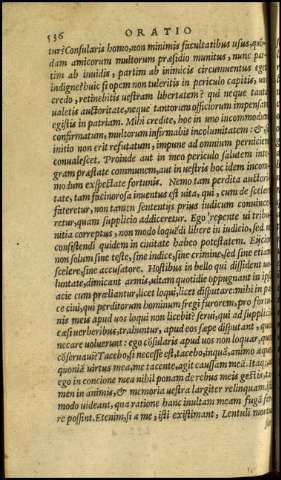 536 ORATIO
tur? Consularis homo, non minimis facultatibus usus, quo-
dam amicorum multorum præsidio munitus, nunc par-
tim ab inuidis, partim ab inimicis circumuentus ego
indigner? huic si opem non tuleritis in periculo capitis,
credo, retinebitis uestram libertatem? qui neque tantum
ualetis auctoritate, neque tantorum officiorum impensam
egistis in patriam. Mihi credite, hoc in uno incommodum
confirmatum, multorum infirmabit incolumitatem: &,
initio non erit refutatum, impune ad omnium perniciem
conualescet. Proinde aut in meo periculo salutem inte-
gram præstate communem, aut in uestris hoc idem incom-
modum expectate fortunis. Nemo tam perdita auctori-
tate, tam facinorosa inuentus est uita, qui, cum de scelere
fateretur, non tamen sententijs prius iudicum conuince-
retur, quam supplicio addiceretur. Ego repente ui tribu-
nitia correptus, non modo loquendi libere in iudicio, sed ne
consistendi quidem in ciuitate habeo potestatem. Eijciar
non solum sine teste, sine indice, sine crimine, sed sine etiam
scelere, sine accusatore. Hostibus in bello qui dissident uo-
luntate, dimicant armis, uitam quotidie oppugnant in
acie cum præliantur, licet loqui, licet disputare. mihi in pa-
ce ciui, qui perditorum hominum fregi furorem, pro fortu-
nis meis apud uos loqui non licebit? serui, qui ad supplici-
cæsi uerberibus, trahuntur, apud eos sæpe disputant,
necare uoluerunt: ego cõsularis apud uos non loquar, quos
cõseruaui? Tacebo, si necesse est, tacebo, inquã, animo æquo
quoniã uirtus mea, me tacente, agit caussam meã. Itaq;
ego in concione mea nihil ponam de rebus meis gestis,
men in animis, & memoria uestra largiter relinquam.
modo uideant, qua ratione hanc inultam meam fugã fer-
re possint. Etenim, si a me, isti existimant, Lentuli mortu